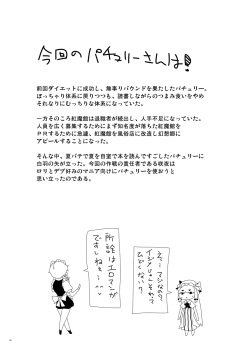 今回のパチュリーさんは!
前回ダイエットに成功し、無事リバウンドを果たしたパチュリー。
ぽっちゃり体系に戻りつつも、読書しながらのつまみ食いをやめ
それなりにむっちりな体系になっていた。
一方そのころ紅魔館は退職者が続出し、人手不足になっていた。
人員を広く募集するためにまず知名度が落ちた紅魔館を
PRするために急遽、紅魔館を風俗店に改造し幻想郷に
アピールすることになった。
そんな中、夏バテで夏を自室で本を読んですごしたパチュリーに
白羽の矢が立った。今回の作戦の責任者である咲夜は
ロリとデブ好みのマニア向けにパチュリーを使おうと
思い立ったのである。
所詮はエロマンガ
ですしねぇ…
えっ…マジなの?
イジメじゃないそれって
ひどくない?